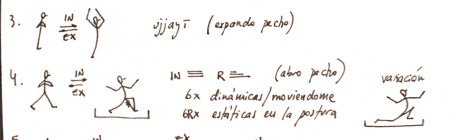 3. IN ex ujjayī (expando pecho)
4. IN ex IN ≡ R ≡ (abro pecho) variación
6x dinámicas/moviendome
6Rx estáticas en la postura